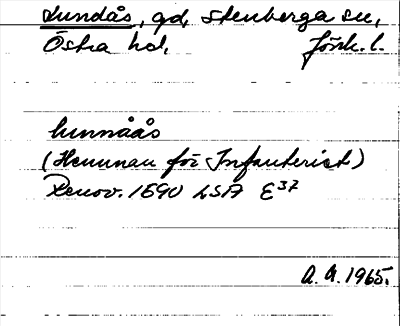 Lundås, gd, Stenberga sn,
Östra hd, Jönk. l.
Lunnåås
(Hemman för Infanterist)
Renov. 1690 LSA E³⁷
A. A. 1965.